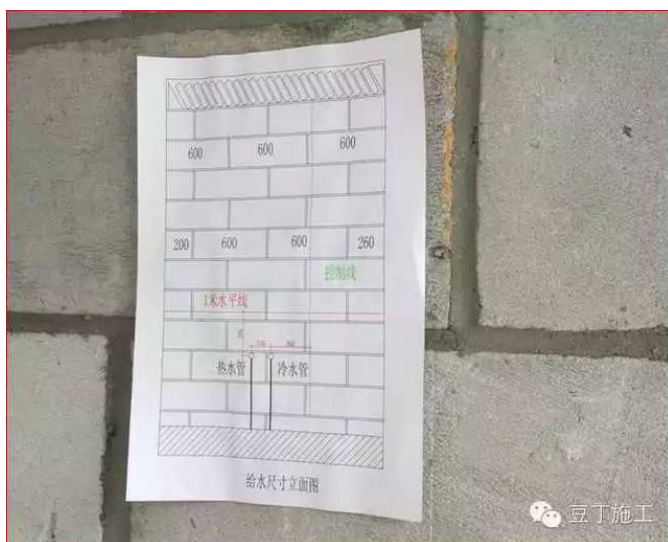 600 600 600
200 600 600 260
控制线
1米水平线
热水管 冷水管
给水尺寸立面图
豆丁施工